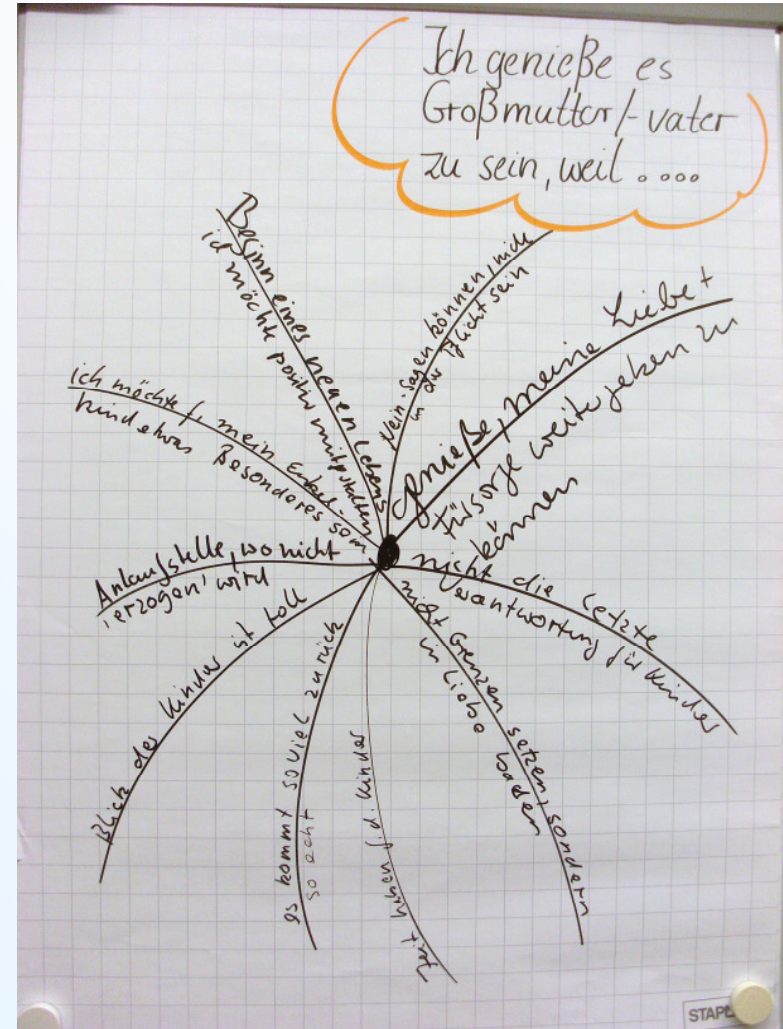 Ich genieße es
Großmutter/-vater
zu sein, weil ....
Beginn eines neuen Lebens
ich möchte positiv mitgestalten
Nein-sagen können, nicht
in der Pflicht sein
genieße, meine Liebe +
Fürsorge weitergeben zu
können
nicht die letzte
Verantwortung für Kinder
nicht Grenzen setzen, sondern
in Liebe baden
Zeit haben f. d. Kinder
es kommt soviel zurück
so echt
Blick der Kinder ist toll
Anlaufstelle, wo nicht
'erzogen' wird
ich möchte f. mein Enkel-
kind etwas Besonderes sein
STAPL